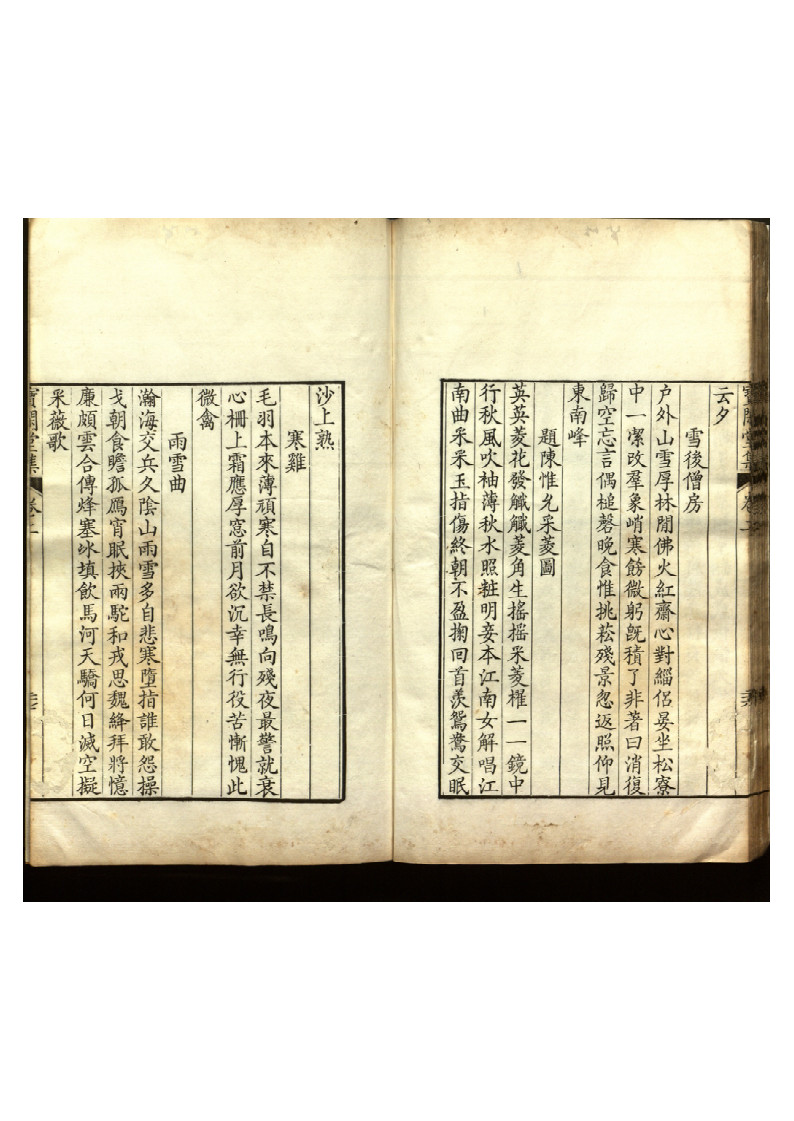 寶閒堂集 卷二
云夕
雪後僧房
户外山雪厚林閒佛火紅齋心對緇侶晏坐松寮
中一潔改羣象峭寒餝微躬既積了非著曰消復
歸空忘言偶槌磬晚食惟挑菘殘景忽返照仰見
東南峰
題陳惟允采菱圖
英英菱花發觿觿菱角生搖搖采菱櫂一一鏡中
行秋風吹袖薄秋水照粧明妾本江南女解唱江
南曲采采玉指傷終朝不盈掬回首羨鴛鴦交眠
沙上熟
寒雞
毛羽本來薄頑寒自不禁長鳴向殘夜最警就衰
心柵上霜應厚窓前月欲沉幸無行役苦慚愧此
微禽
雨雪曲
瀚海交兵久陰山雨雪多自悲寒墮指誰敢怨操
戈朝食瞻孤鴈宵眠挾兩駝和戎思魏絳拜將憶
廉頗雲合傳烽塞冰填飲馬河天驕何日滅空擬
采薇歌
寶閒堂集 卷二